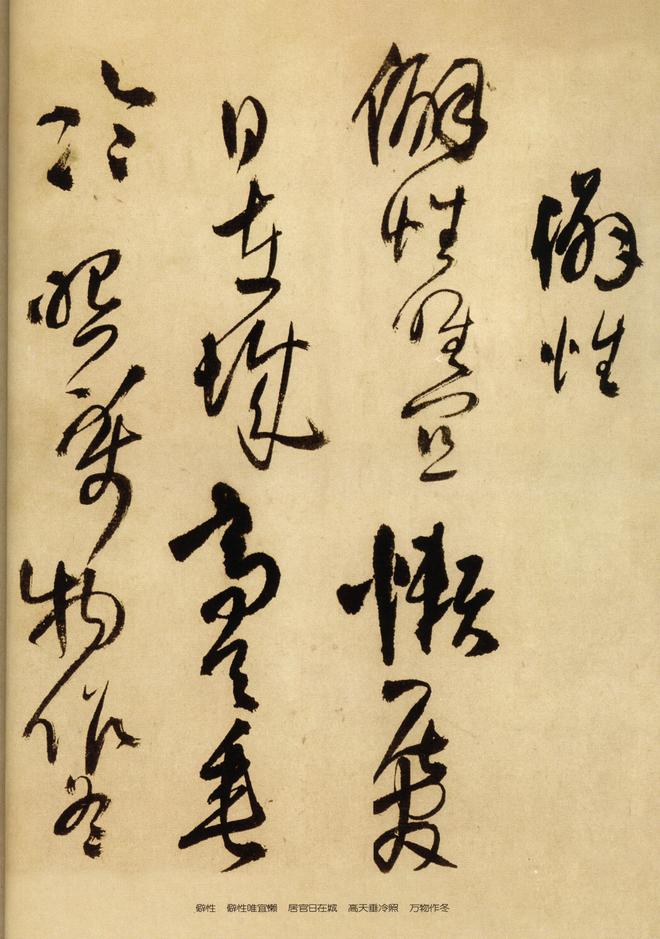 僻性
僻性唯宜懶
日在 高天垂
冷照萬物作冬
僻性　僻性唯宜懒　居官日在嫔　高天垂冷照　万物作冬